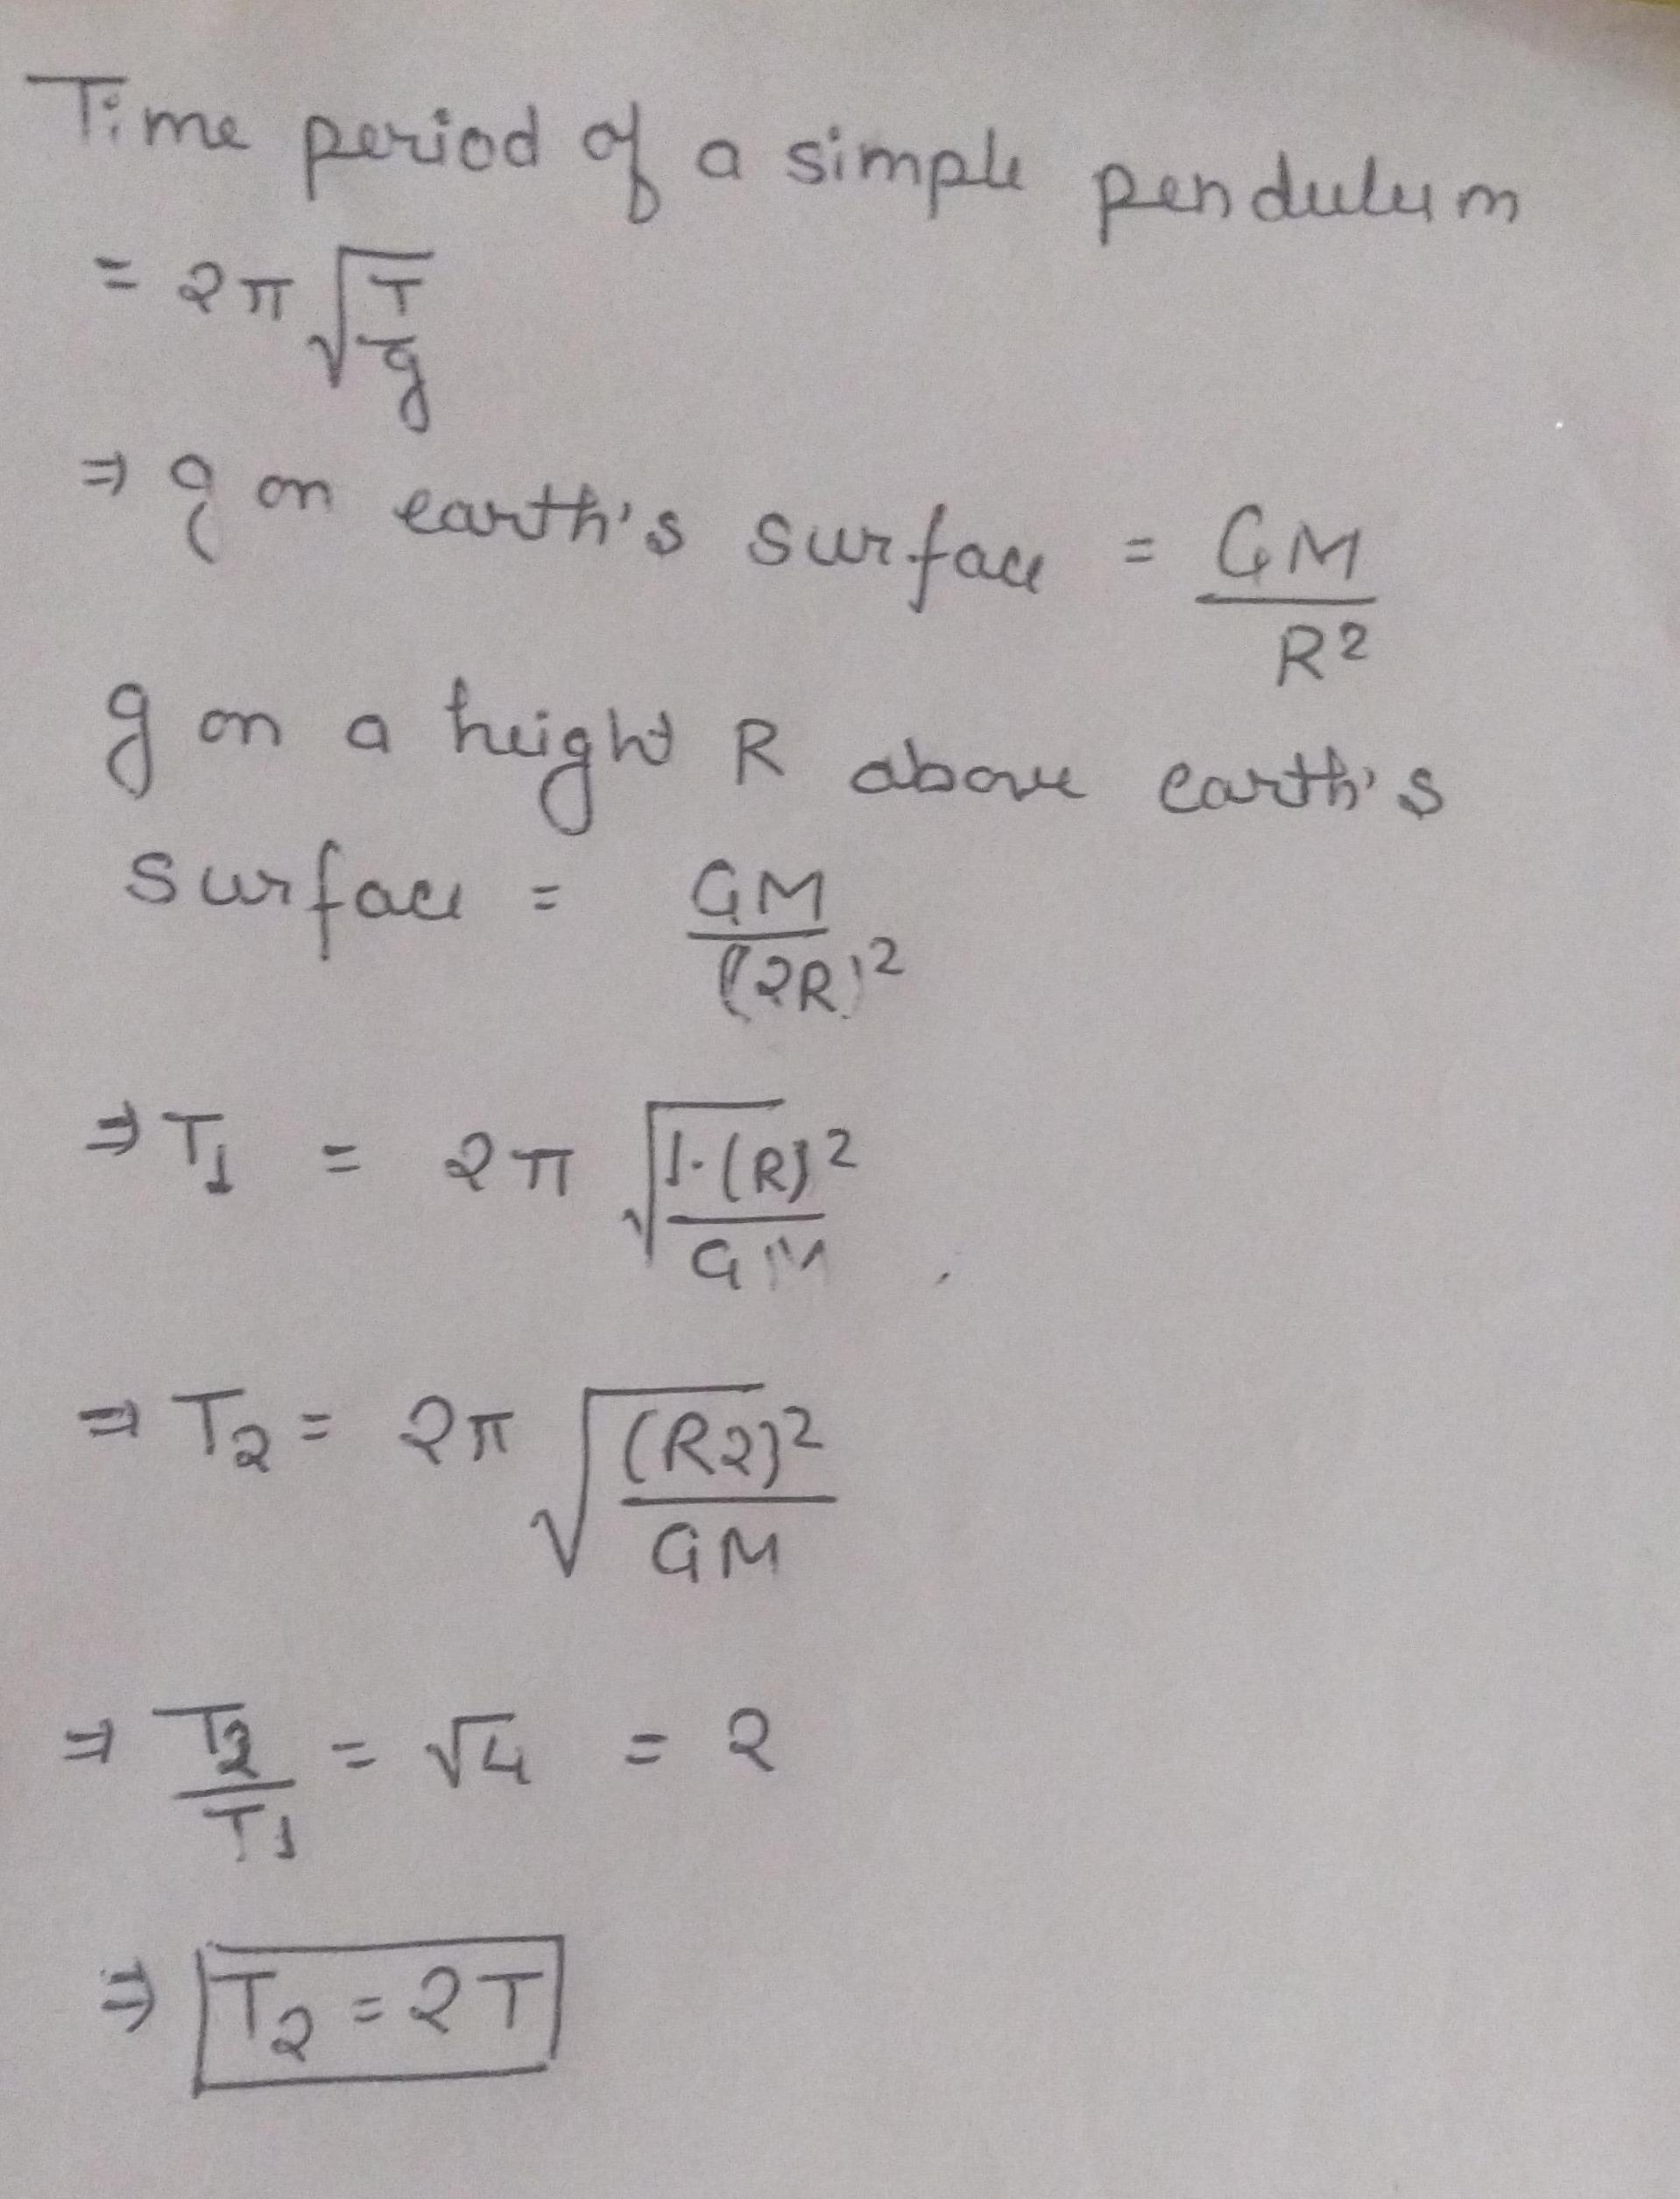 Time period of a simple pendulum
= 2π √(T/g)
⇒ g on earth's surface = GM/R²
g on a height R above earth's
surface = GM/(2R)²
⇒ T₁ = 2π √(1·(R)²/GM)
⇒ T₂ = 2π √((R2)²/GM)
⇒ T₂/T₁ = √4 = 2
⇒ T₂ = 2T